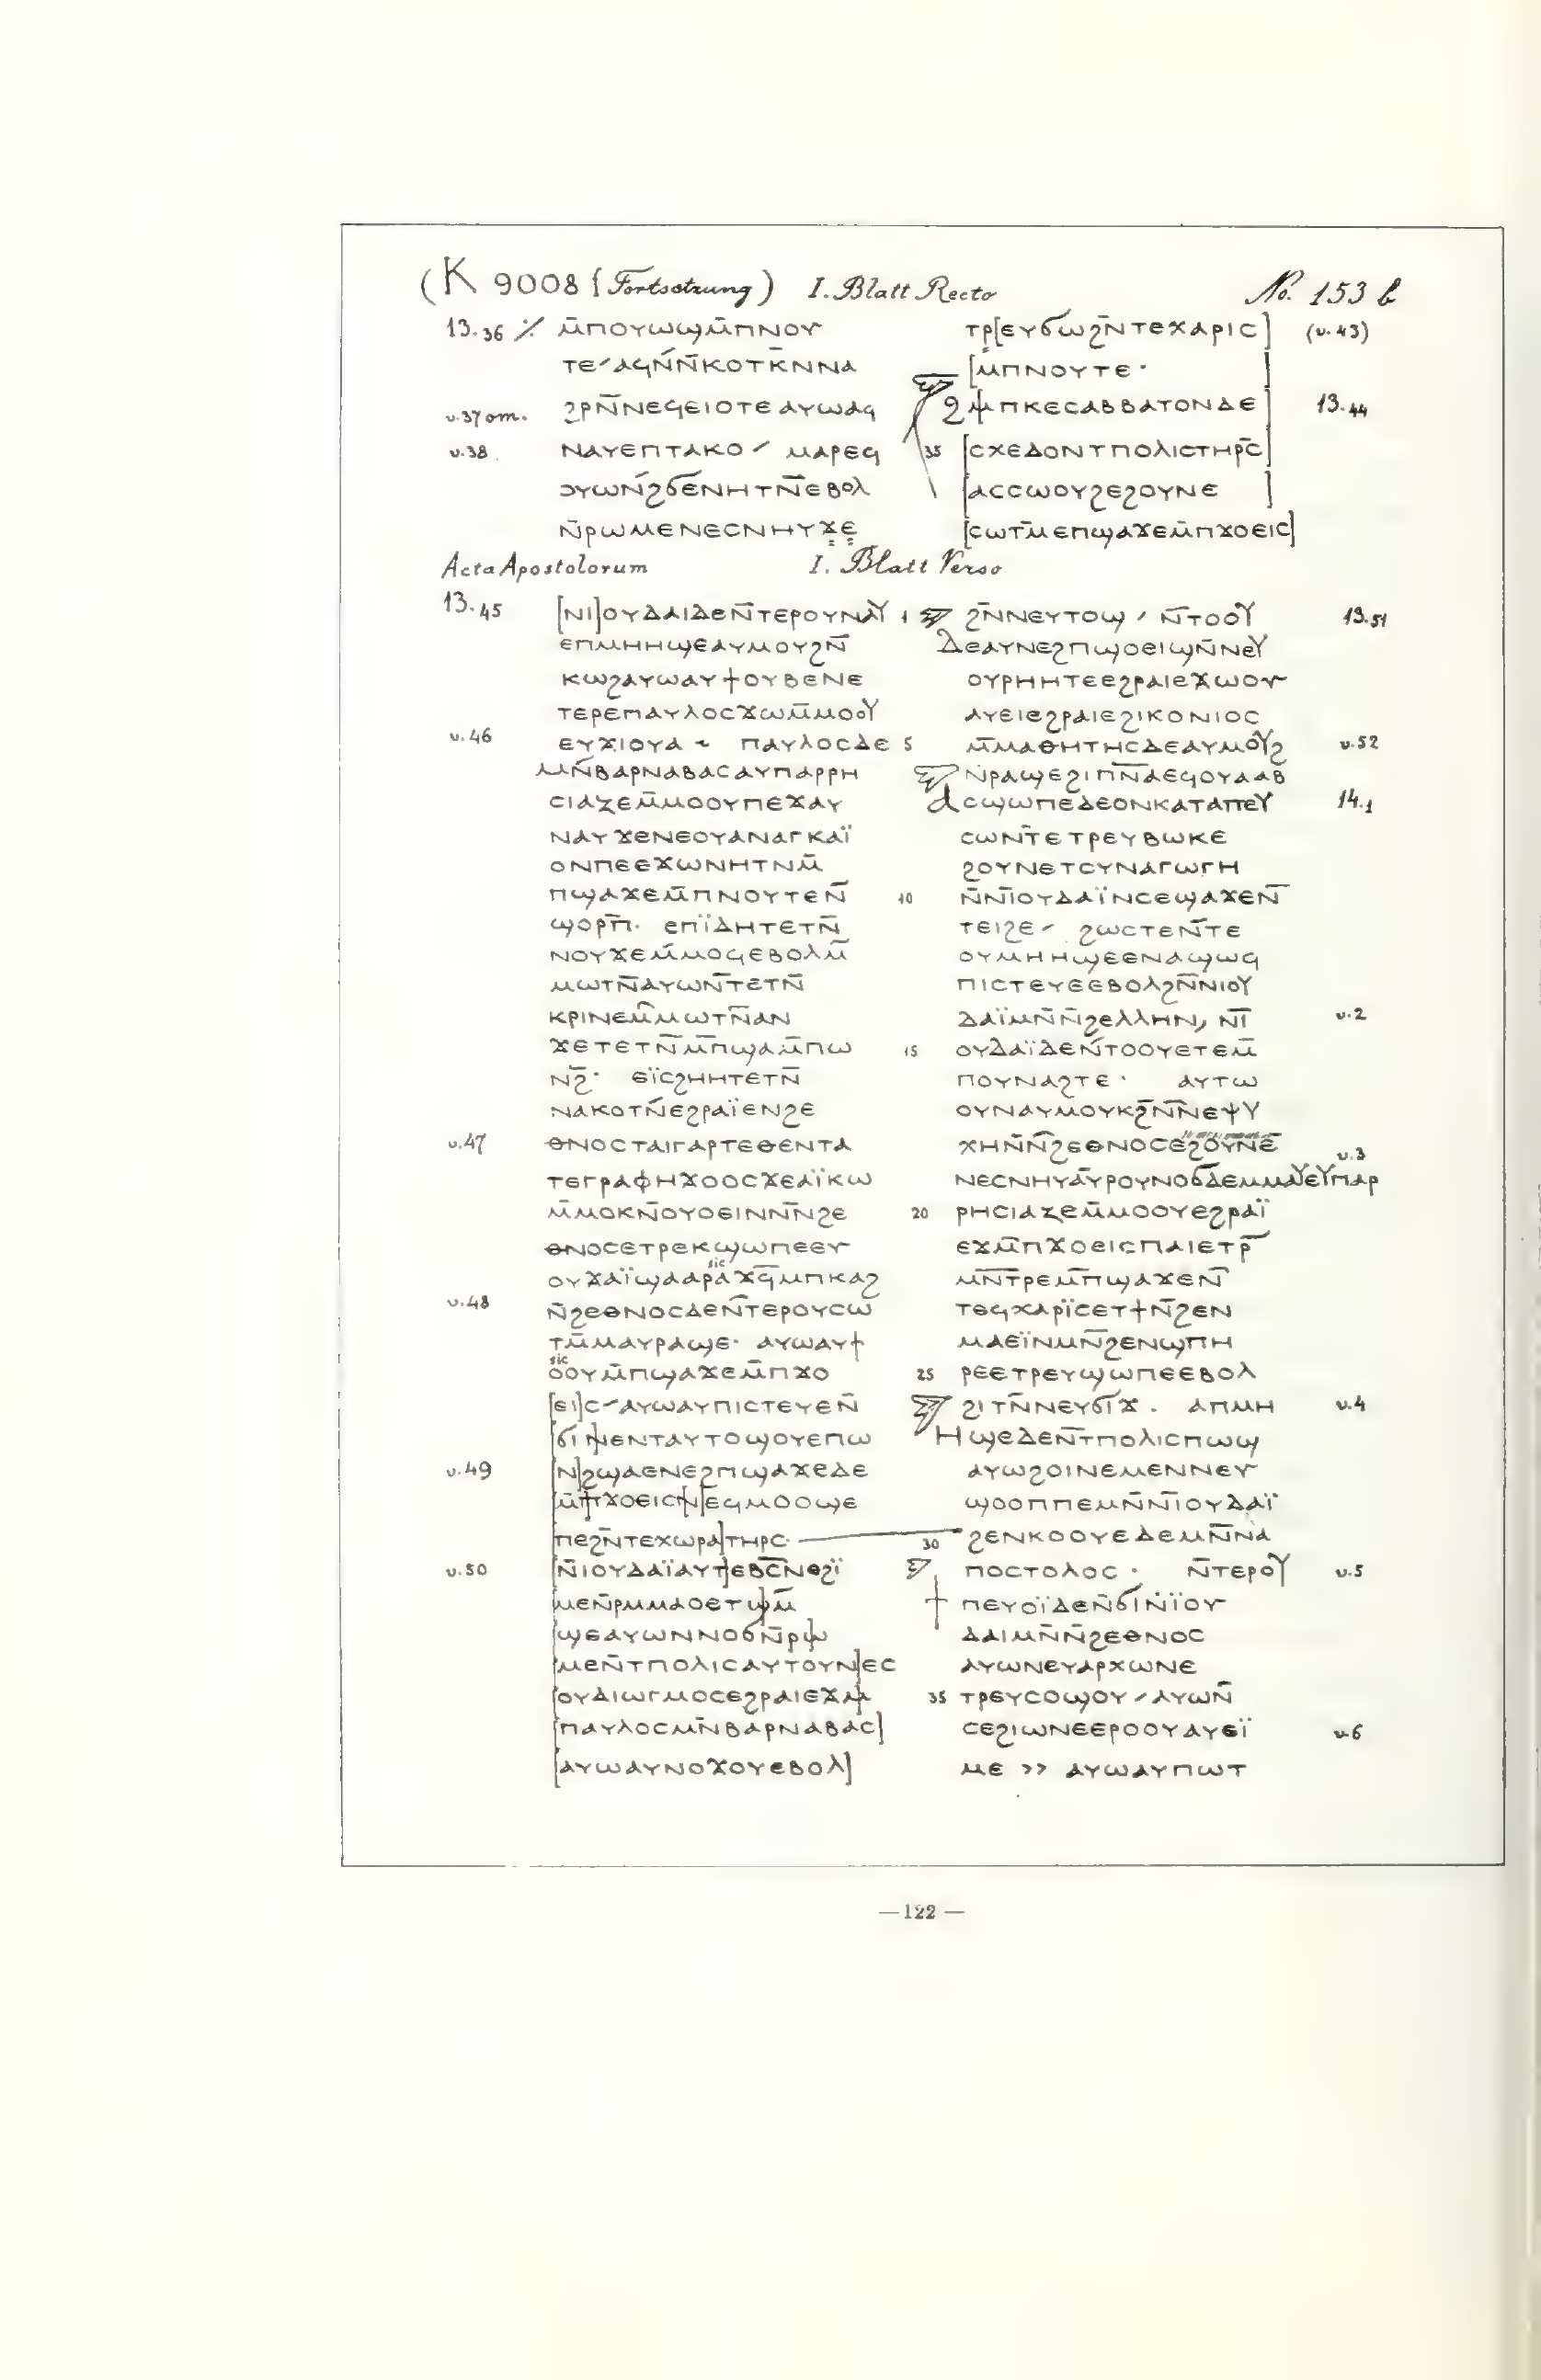 (K 9008 {Fortsetzung) I. Blatt Recto No. 153 b
13.36 ⁒ ⲙ̄ⲡⲟⲩⲱϣⲙ̄ⲡⲛⲟⲩ
ⲧⲉ ⸍ ⲁϥⲛ̄ⲛ̄ⲕⲟⲧⲕ̄ⲛⲛⲁ
v.37 om. ϩⲣⲛ̄ⲛⲉϥⲉⲓⲟⲧⲉⲁⲩⲱⲁϥ
v.38 ⲛⲁⲩⲉⲡⲧⲁⲕⲟ ⸍ ⲙⲁⲣⲉϥ
ⲟⲩⲱⲛ̄ϩϭⲉⲛⲏⲧⲛ̄ⲉⲃⲟⲗ
ⲛ̄ⲣⲱⲙⲉⲛⲉⲥⲛⲏⲩϫ̣ⲉ̣
ⲧⲣ[ⲉⲩϭⲱϩⲛ̄ⲧⲉⲭⲁⲣⲓⲥ] (v.43)
[ⲙ̄ⲡⲛⲟⲩⲧⲉ·]
ϩⲙ̄ⲡⲕⲉⲥⲁⲃⲃⲁⲧⲟⲛⲇⲉ] 13.44
35 [ⲥⲭⲉⲇⲟⲛⲧⲡⲟⲗⲓⲥⲧⲏⲣⲥ̄]
[ⲁⲥⲥⲱⲟⲩϩⲉϩⲟⲩⲛⲉ]
[ⲥⲱⲧⲙ̄ⲉⲡϣⲁϫⲉⲙ̄ⲡϫⲟⲉⲓⲥ]
Acta Apostolorum I. Blatt Verso
13.45 [ⲛⲓ]ⲟⲩⲇⲁⲓⲇⲉⲛ̄ⲧⲉⲣⲟⲩⲛⲁⲩ
ⲉⲡⲙⲏⲏϣⲉⲁⲩⲙⲟⲩϩⲛ̄
ⲕⲱϩⲁⲩⲱⲁⲩϯⲟⲩⲃⲉⲛⲉ
ⲧⲉⲣⲉⲡⲁⲩⲗⲟⲥϫⲱⲙ̄ⲙⲟⲟⲩ
v.46 ⲉⲩϫⲓⲟⲩⲁ ~ ⲡⲁⲩⲗⲟⲥⲇⲉ
ⲙⲛ̄ⲃⲁⲣⲛⲁⲃⲁⲥⲁⲩⲡⲁⲣⲣⲏ
ⲥⲓⲁⲍⲉⲙ̄ⲙⲟⲟⲩⲡⲉϫⲁⲩ
ⲛⲁⲩϫⲉⲛⲉⲟⲩⲁⲛⲁⲅⲕⲁⲓ̈
ⲟⲛⲡⲉⲉϫⲱⲛⲏⲧⲛⲙ̄
ⲡϣⲁϫⲉⲙ̄ⲡⲛⲟⲩⲧⲉⲛ̄
ϣⲟⲣⲡ̄· ⲉⲡⲓ̈ⲇⲏⲧⲉⲧⲛ̄
ⲛⲟⲩϫⲉⲙ̄ⲙⲟϥⲉⲃⲟⲗⲙ̄
ⲙⲱⲧⲛ̄ⲁⲩⲱⲛ̄ⲧⲉⲧⲛ̄
ⲕⲣⲓⲛⲉⲙ̄ⲙⲱⲧⲛ̄ⲁⲛ
ϫⲉⲧⲉⲧⲛ̄ⲙ̄ⲡϣⲁⲙ̄ⲡⲱ
ⲛϩ̄· ⲉⲓ̈ⲥϩⲏⲏⲧⲉⲧⲛ̄
ⲛⲁⲕⲟⲧⲛ̄ⲉϩⲣⲁⲓ̈ⲉⲛϩⲉ
v.47 ⲑⲛⲟⲥⲧⲁⲓⲅⲁⲣⲧⲉⲑⲉⲛⲧⲁ
ⲧⲉⲅⲣⲁⲫⲏϫⲟⲟⲥϫⲉⲁⲓ̈ⲕⲱ
ⲙ̄ⲙⲟⲕⲛ̄ⲟⲩⲟⲉⲓⲛⲛ̄ⲛ̄ϩⲉ
ⲑⲛⲟⲥⲉⲧⲣⲉⲕϣⲱⲡⲉⲉⲩ
sic
ⲟⲩϫⲁⲓ̈ϣⲁⲁⲣⲁϫϥ̄ⲙⲡⲕⲁϩ
v.48 ⲛ̄ϩⲉⲑⲛⲟⲥⲇⲉⲛ̄ⲧⲉⲣⲟⲩⲥⲱ
ⲧⲙ̄ⲙⲁⲩⲣⲁϣⲉ· ⲁⲩⲱⲁⲩϯ
sic
ⲟⲟⲩⲙ̄ⲡϣⲁϫⲉⲙ̄ⲡϫⲟ
[ⲉⲓ]ⲥ⸍ⲁⲩⲱⲁⲩⲡⲓⲥⲧⲉⲩⲉⲛ̄
[ϭⲓ ⲛ]ⲉⲛⲧⲁⲩⲧⲟϣⲟⲩⲉⲡⲱ
v.49 [ⲛ]ϩϣⲁⲉⲛⲉϩⲡϣⲁϫⲉⲇⲉ
[ⲙ̄ⲡϫⲟⲉⲓⲥⲛ]ⲉϥⲙⲟⲟϣⲉ
[ⲡⲉϩⲛ̄ⲧⲉⲭⲱⲣⲁ]ⲧⲏⲣⲥ·
v.50 [ⲛ̄ⲓⲟⲩⲇⲁⲓ̈ⲁⲩⲧ]ⲉⲃⲥ̄ⲛⲉϩⲓ̈
[ⲙⲉⲛ̄ⲣⲙⲙⲁⲟⲉⲧϣ]ⲙ̄
[ϣⲉⲁⲩⲱⲛⲛⲟϭⲛ̄ⲣⲱ]
[ⲙⲉⲛ̄ⲧⲡⲟⲗⲓⲥⲁⲩⲧⲟⲩⲛ]ⲉⲥ
[ⲟⲩⲇⲓⲱⲅⲙⲟⲥⲉϩⲣⲁⲓⲉϫⲙ̄]
[ⲡⲁⲩⲗⲟⲥⲙⲛ̄ⲃⲁⲣⲛⲁⲃⲁⲥ]
[ⲁⲩⲱⲁⲩⲛⲟϫⲟⲩⲉⲃⲟⲗ]
1 ϩⲛ̄ⲛⲉⲩⲧⲟϣ ⸍ ⲛ̄ⲧⲟⲟⲩ 13.51
ⲇⲉⲁⲩⲛⲉϩⲡϣⲟⲉⲓϣⲛ̄ⲛⲉⲩ
ⲟⲩⲣⲏⲏⲧⲉⲉϩⲣⲁⲓⲉϫⲱⲟⲩ
ⲁⲩⲉⲓⲉϩⲣⲁⲓⲉϩⲓⲕⲟⲛⲓⲟⲥ
5 ⲙ̄ⲙⲁⲑⲏⲧⲏⲥⲇⲉⲁⲩⲙⲟⲩϩ v.52
ⲛ̄ⲣⲁϣⲉϩⲓⲡⲛ̄ⲁⲉϥⲟⲩⲁⲁⲃ
ⲁⲥϣⲱⲡⲉⲇⲉⲟⲛⲕⲁⲧⲁⲡⲉⲩ 14.1
ⲥⲱⲛ̄ⲧⲉⲧⲣⲉⲩⲃⲱⲕⲉ
ϩⲟⲩⲛⲉⲧⲥⲩⲛⲁⲅⲱⲅⲏ
10 ⲛ̄ⲛ̄ⲓⲟⲩⲇⲁⲓ̈ⲛⲥⲉϣⲁϫⲉⲛ̄
ⲧⲉⲓϩⲉ⸍ ϩⲱⲥⲧⲉⲛ̄ⲧⲉ
ⲟⲩⲙⲏⲏϣⲉⲉⲛⲁϣⲱϥ
ⲡⲓⲥⲧⲉⲩⲉⲉⲃⲟⲗϩⲛ̄ⲛⲓⲟⲩ
ⲇⲁⲓ̈ⲙⲛ̄ⲛ̄ϩⲉⲗⲗⲏⲛ, ⲛ̄ⲓ v.2
15 ⲟⲩⲇⲁⲓ̈ⲇⲉⲛ̄ⲧⲟⲟⲩⲉⲧⲉⲙ̄
ⲡⲟⲩⲛⲁϩⲧⲉ· ⲁⲩⲧⲱ
ⲟⲩⲛⲁⲩⲙⲟⲩⲕϩⲛ̄ⲛⲉⲯⲩ
ⲭⲏⲛ̄ⲛ̄ϩⲉⲑⲛⲟⲥⲉϩⲟⲩⲛⲉ
ⲛⲉⲥⲛⲏⲩⲁⲩⲣⲟⲩⲛⲟϭⲇⲉⲙⲙⲁⲩⲉⲩⲡⲁⲣ v.3
20 ⲣⲏⲥⲓⲁⲍⲉⲙ̄ⲙⲟⲟⲩⲉϩⲣⲁⲓ̈
ⲉϫⲙ̄ⲡϫⲟⲉⲓⲥⲡⲁⲓⲉⲧⲣ̄
ⲙⲛ̄ⲧⲣⲉⲙ̄ⲡϣⲁϫⲉⲛ̄
ⲧⲉϥⲭⲁⲣⲓ̈ⲥⲉⲧϯⲛ̄ϩⲉⲛ
ⲙⲁⲉⲓ̈ⲛⲙⲛ̄ϩⲉⲛϣⲡⲏ
25 ⲣⲉⲉⲧⲣⲉⲩϣⲱⲡⲉⲉⲃⲟⲗ
ϩⲓⲧⲛ̄ⲛⲉⲩϭⲓϫ. ⲁⲡⲙⲏ v.4
ⲏϣⲉⲇⲉⲛ̄ⲧⲡⲟⲗⲓⲥⲡⲱϣ
ⲁⲩⲱϩⲟⲓⲛⲉⲙⲉⲛⲛⲉⲩ
ϣⲟⲟⲡⲡⲉⲙⲛ̄ⲛ̄ⲓⲟⲩⲇⲁⲓ̈
30 ϩⲉⲛⲕⲟⲟⲩⲉⲇⲉⲙⲛ̄ⲛⲁ
ⲡⲟⲥⲧⲟⲗⲟⲥ· ⲛ̄ⲧⲉⲣⲟⲩ v.5
ⲡⲉⲩⲟⲓ̈ⲇⲉⲛ̄ϭⲓⲛ̄ⲓ̈ⲟⲩ
ⲇⲁⲓⲙⲛ̄ⲛ̄ϩⲉⲑⲛⲟⲥ
ⲁⲩⲱⲛⲉⲩⲁⲣⲭⲱⲛⲉ
35 ⲧⲣⲉⲩⲥⲟϣⲟⲩ⸍ⲁⲩⲱⲛ̄
ⲥⲉϩⲓⲱⲛⲉⲉⲣⲟⲟⲩⲁⲩⲉⲓ̈ v.6
ⲙⲉ >> ⲁⲩⲱⲁⲩⲡⲱⲧ
—122—